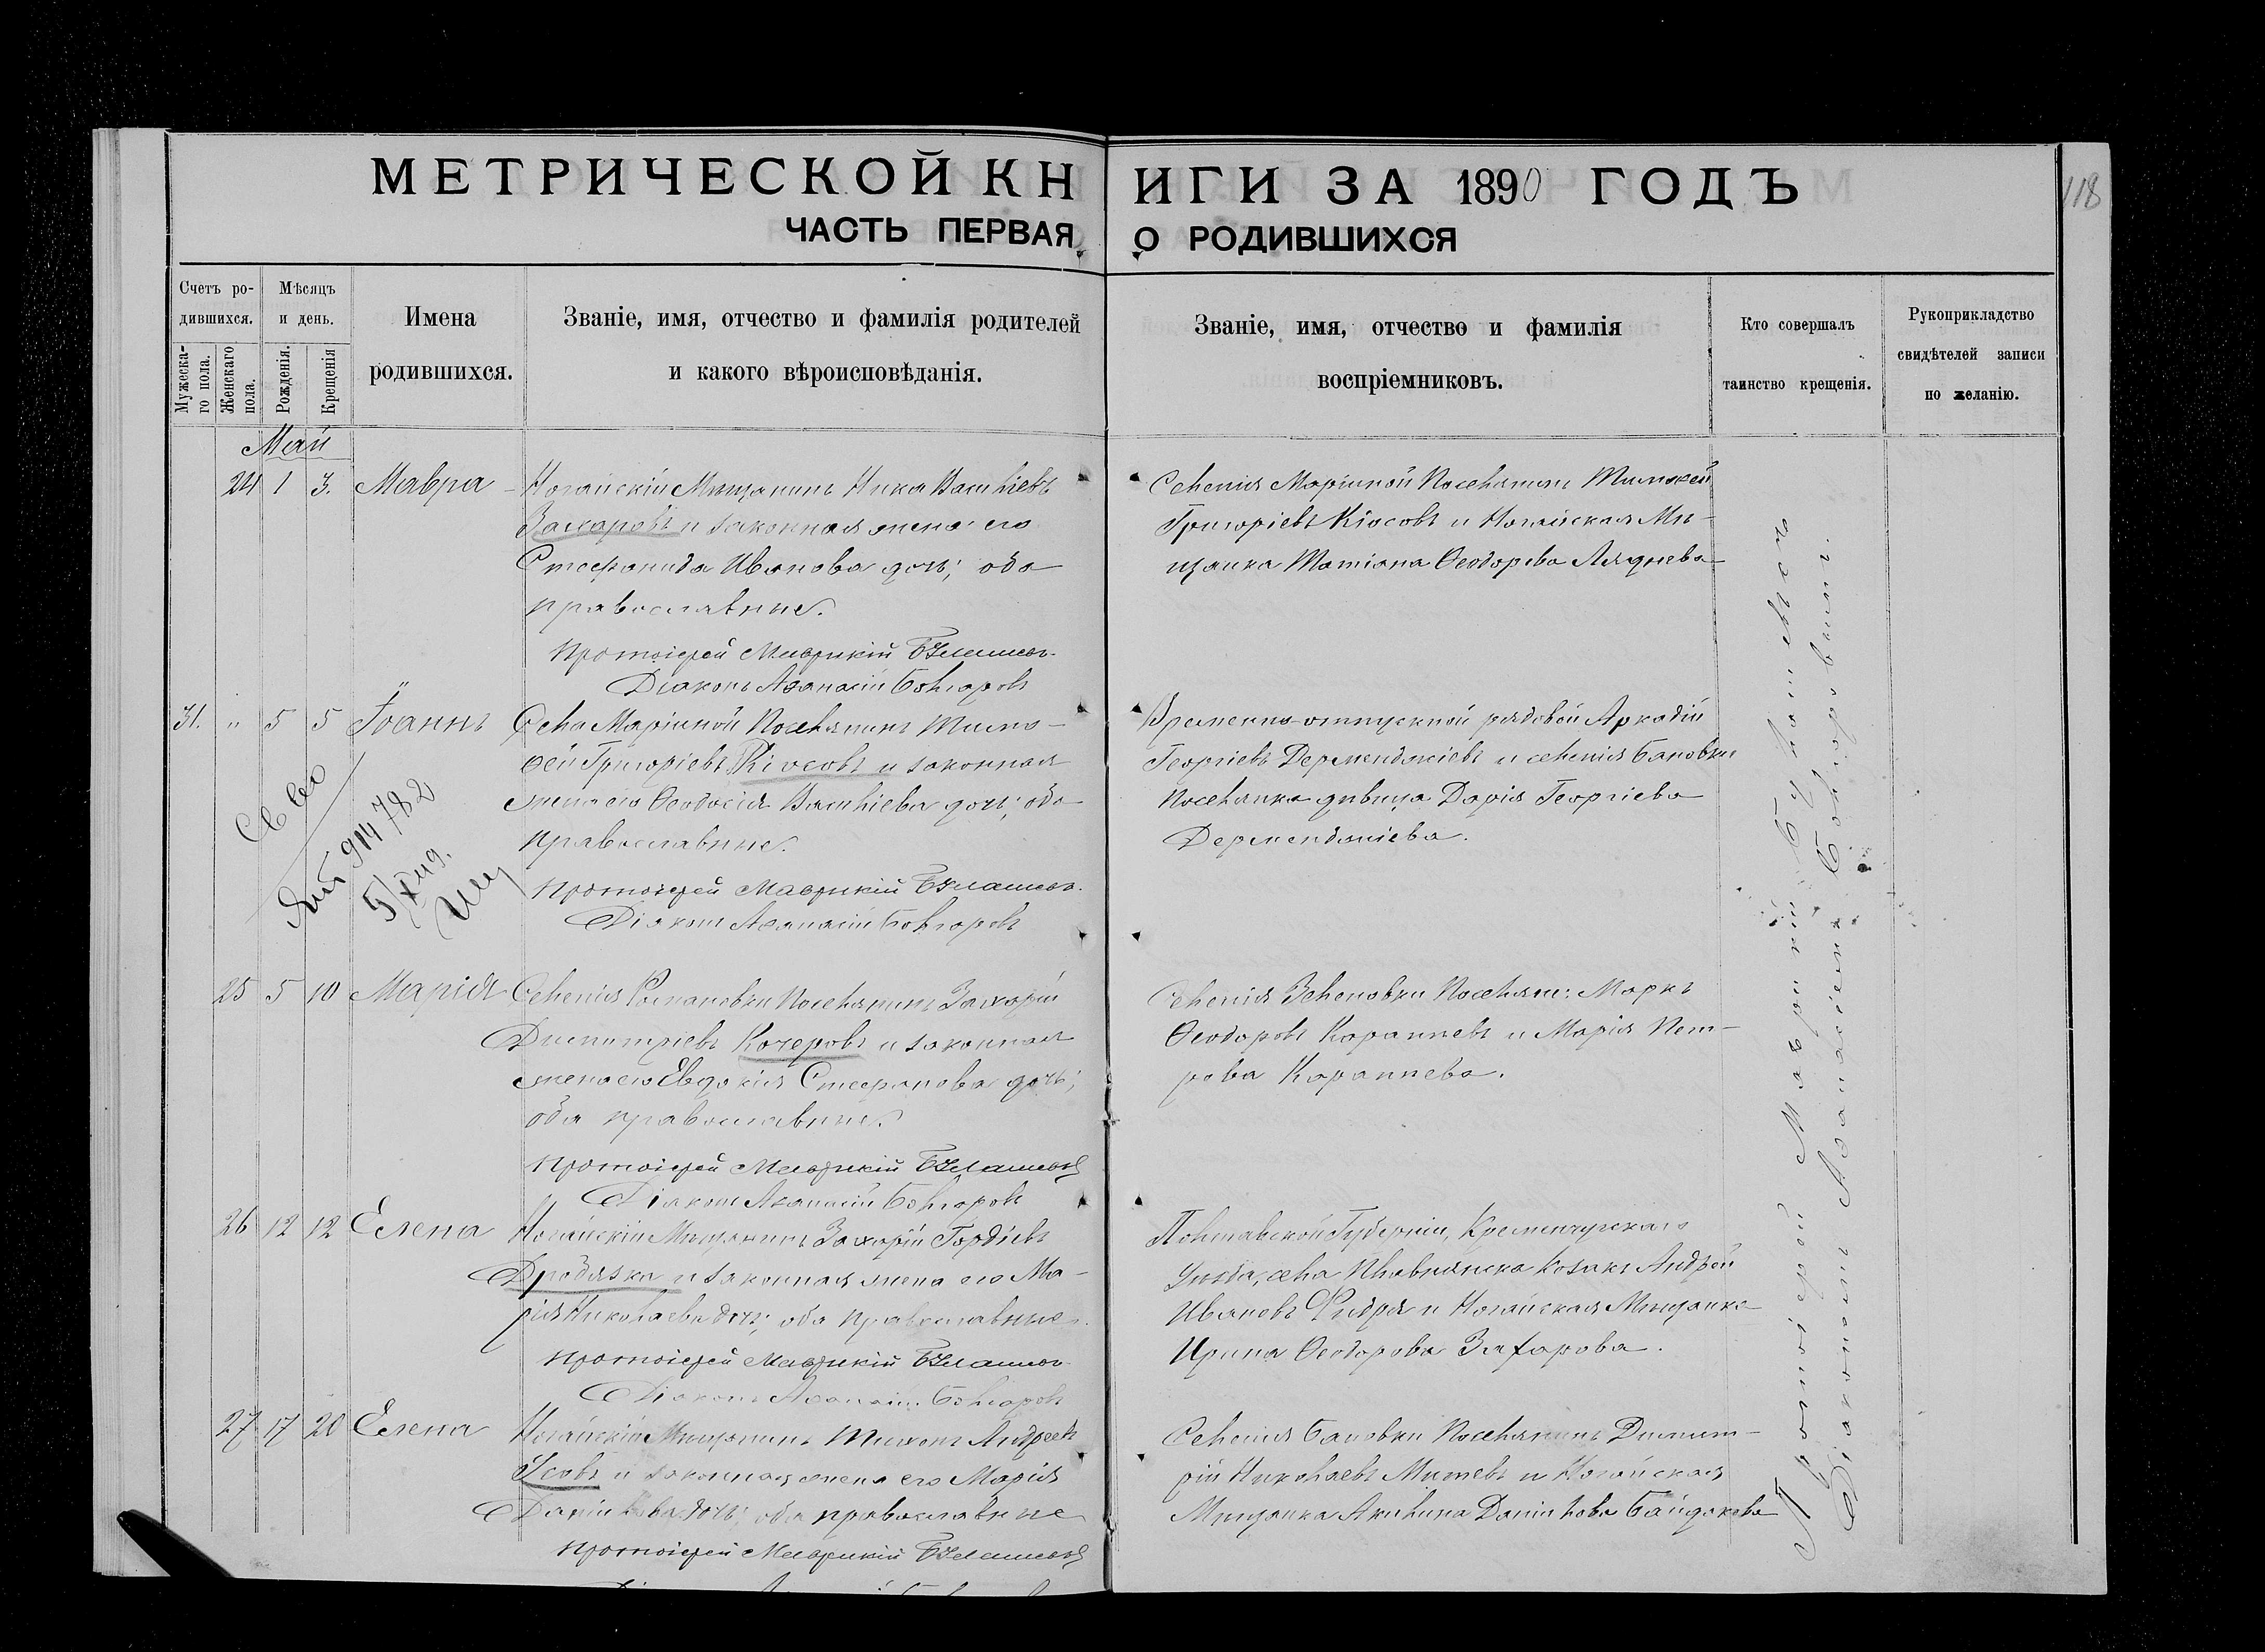 МЕТРИЧЕСКОЙ КНИГИ ЗА 1890 ГОДЪ
118
ЧАСТЬ ПЕРВАЯ, О РОДИВШИХСЯ
Счетъ ро-
дившихся.
Мужеска-
го пола.
Женскаго
пола.
Мѣсяцъ
и день.
Рожденія.
Крещенія
Имена
родившихся.
Званіе, имя, отчество и фамилія родителей
и какого вѣроисповѣданія.
Званіе, имя, отчество и фамилія
воспріемниковъ.
Кто совершалъ
таинство крещенія.
Рукоприкладство
свидѣтелей записи
по желанію.
Май
24 1 3. Мавра
Ногайскій Мѣщанинъ Ника Васильевъ
Захаровъ и законная жена его
Стефанида Иванова дочь; оба
православные.
Протоіерей Маврикій
Діаконъ Аѳанасій Болгаровъ
Селенія Маріиной Поселянинъ Тимоѳей
Григоріевъ Кіосовъ и Ногайская Мѣ-
щанка Татіана Ѳеодорова Ляднева
31. " 5 5 Іоаннъ
Села Маріиной Поселянинъ Тимо-
ѳей Григоріевъ Кіосовъ и законная
жена его Ѳеодосія Васильева дочь; оба
православные.
Протоіерей Маврикій
Діаконъ Аѳанасій Болгаровъ
914782
Временно-отпускной рядовой Аркадій
Георгіевъ Дерменджіевъ и селенія Бановки
Поселянка дѣвица Дарія Георгіева
Дерменджіева.
25 5 10 Марія
Селенія Романовки Поселянинъ Захарій
Димитріевъ Кочеровъ и законная
жена его Евдокія Стефанова дочь;
оба православные.
Протоіерей Маврикій
Діаконъ Аѳанасій Болгаровъ
Селенія Зеленовки Поселяне: Маркъ
Ѳеодоровъ Караппевъ и Марія Пет-
рова Караппева.
26 12 12 Елена
Ногайскій Мѣщанинъ Захарій Гордіевъ
Дробязка и законная жена его Ма-
рія Николаева дочь; оба православные.
Протоіерей Маврикій
Діаконъ Аѳанасій Болгаровъ
Полтавской Губерніи, Кременчугскаго
Уѣзда, села Козакъ Андрей
Ивановъ и Ногайская Мѣщанка
Ирина Ѳеодорова Захарова.
27 17 20 Елена
Ногайскій Мѣщанинъ Тихонъ Андреевъ
Усовъ и законная жена его Марія
Даніилова дочь; оба православные
Протоіерей Маврикій
Селенія Бановки Поселянинъ Димит-
рій Николаевъ Митевъ и Ногайская
Мѣщанка Акилина Даніилова Байдакова
Протоіерей Маврикій съ
Діакономъ Аѳанасіемъ Болгаровымъ.